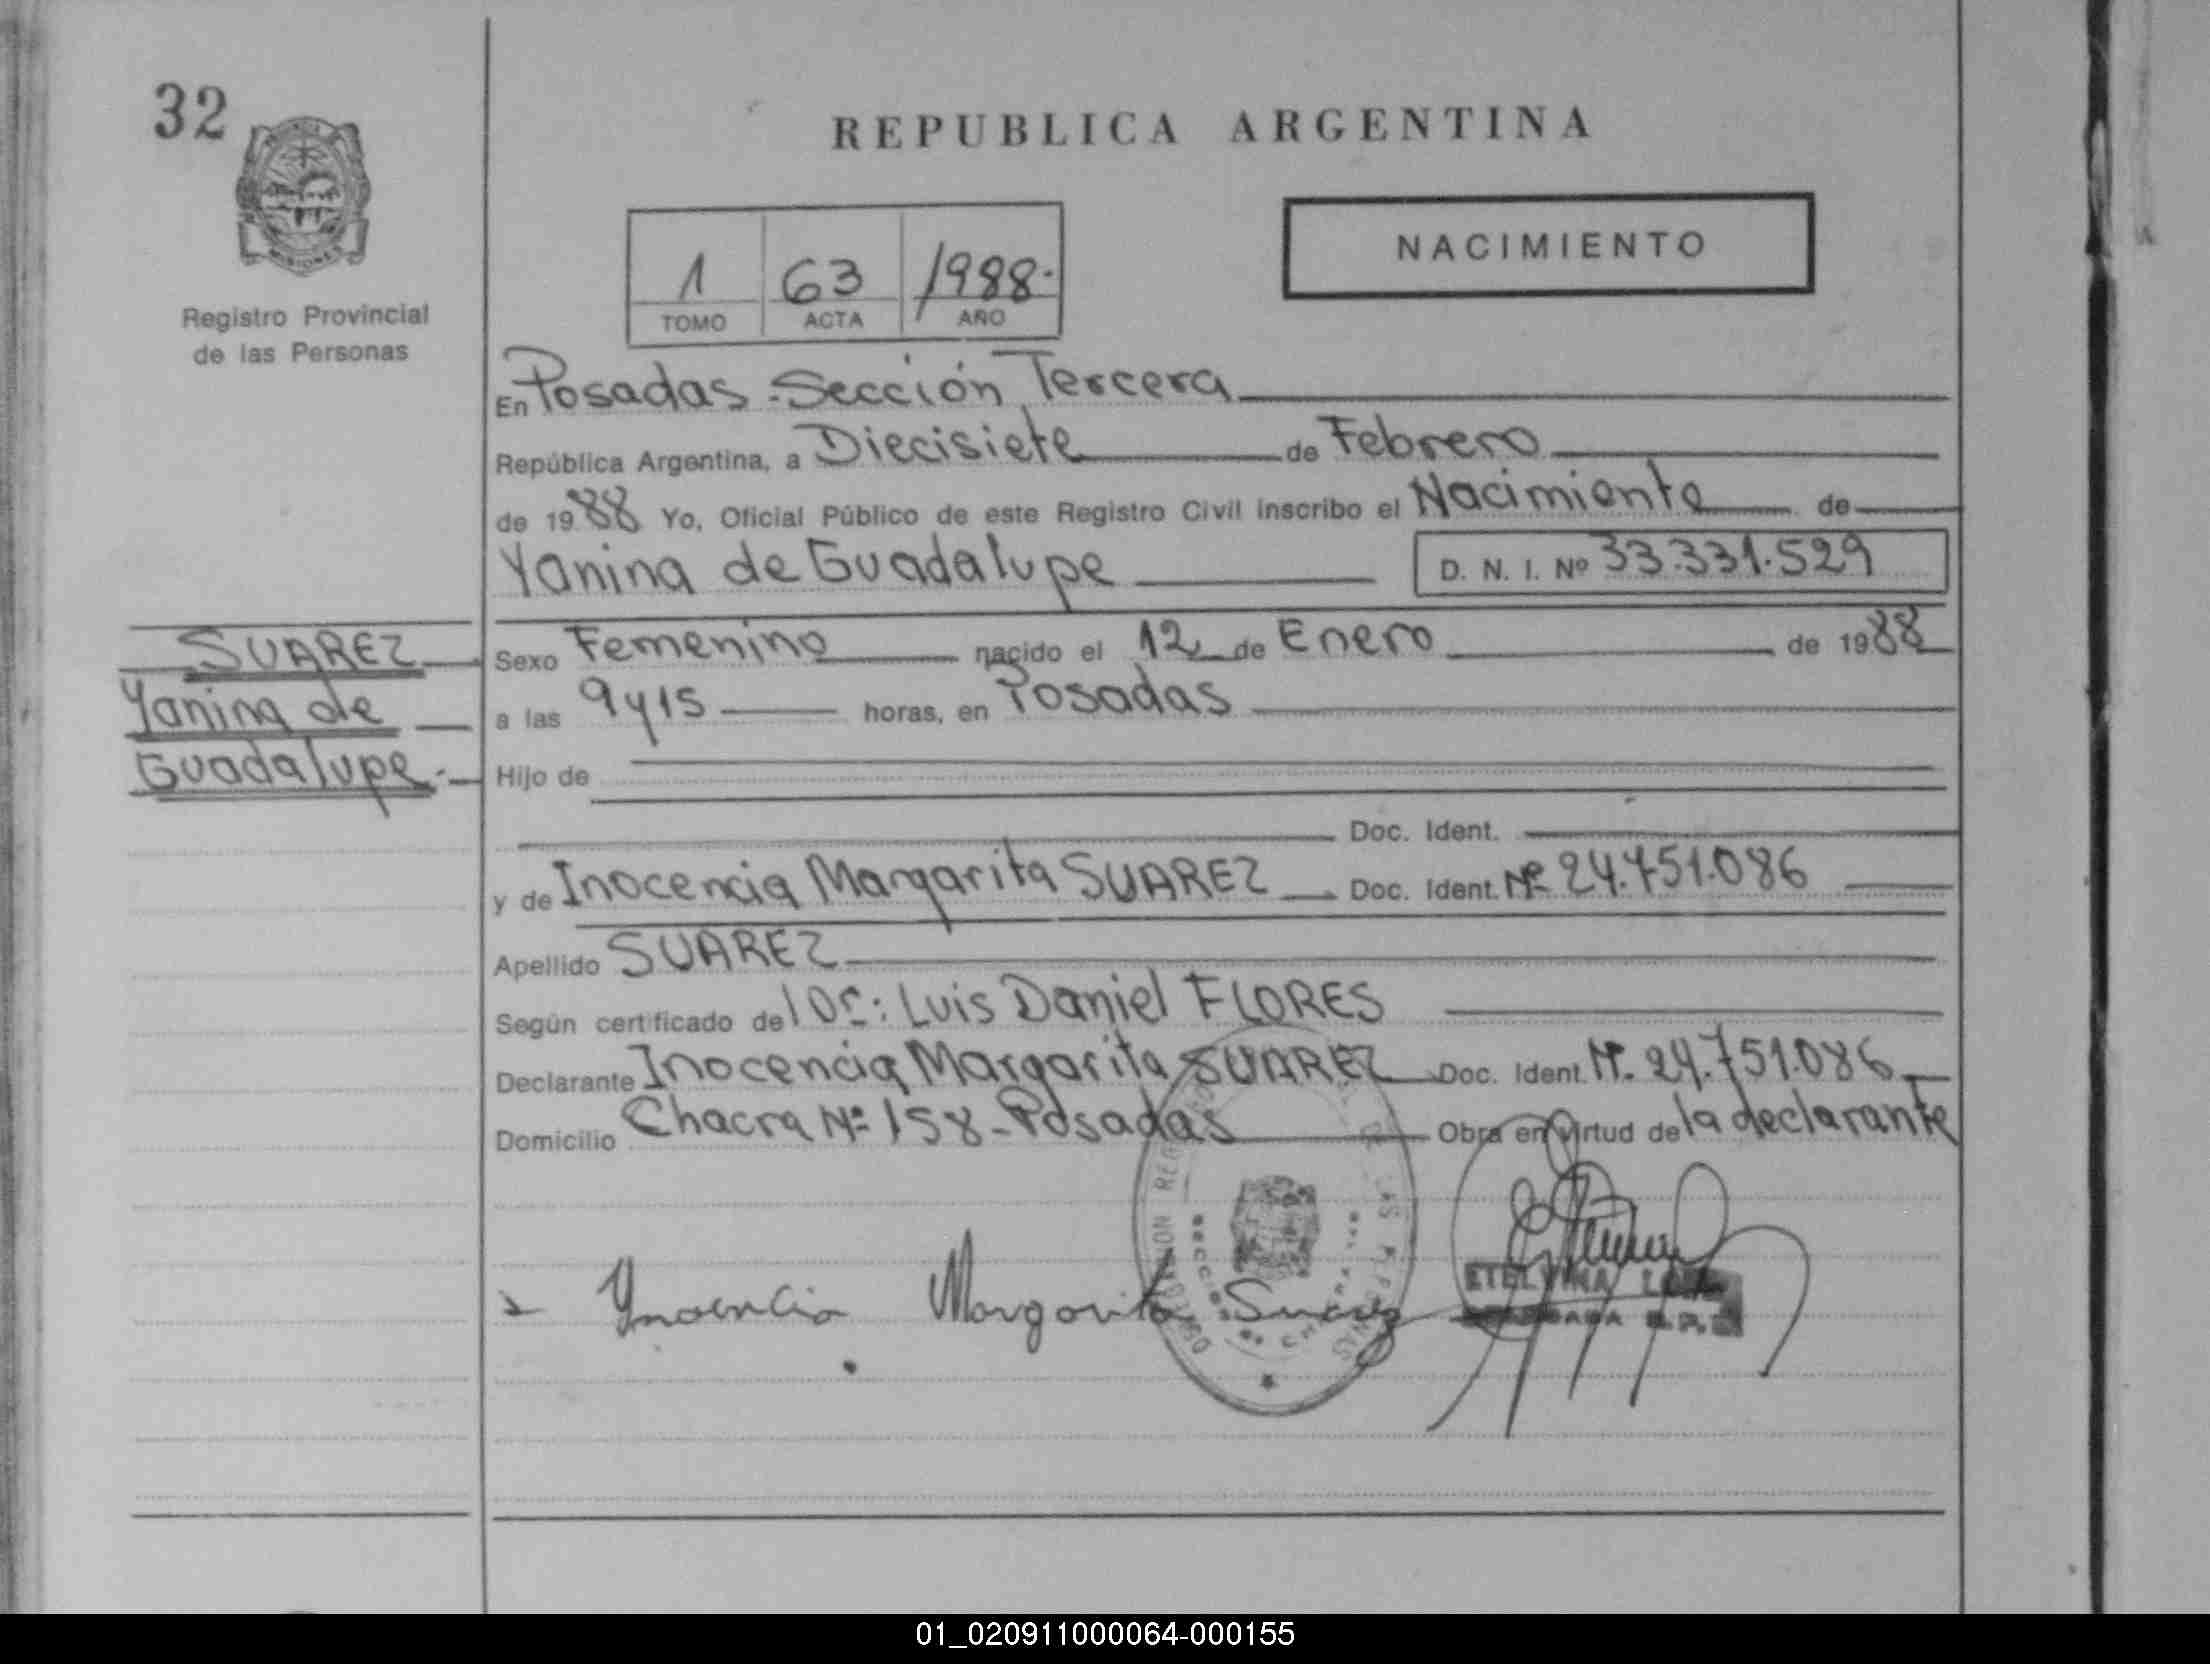 32
REPUBLICA ARGENTINA
MISIONES
NACIMIENTO
1 63 1988.
TOMO ACTA AÑO
Registro Provincial
de las Personas
En Posadas - Sección Tercera
República Argentina, a Diecisiete de Febrero
de 1988 Yo, Oficial Público de este Registro Civil inscribo el Nacimiento de
Yanina de Guadalupe D. N. I. Nº 33.331.529
SUAREZ
Yanina de
Guadalupe.-
Sexo Femenino nacido el 12 de Enero de 1988
a las 9y15 horas, en Posadas
Hijo de
Doc. Ident.
y de Inocencia Margarita SUAREZ Doc. Ident. Nº 24.751.086
Apellido SUAREZ
Según certificado del Dr: Luis Daniel FLORES
Declarante Inocencia Margarita SUAREZ Doc. Ident. Nº. 24.751.086
Domicilio Chacra Nº 158 - Posadas Obra en virtud de la declarante
Ynocencia Margarita Suarez
ETELVINA
01_020911000064-000155